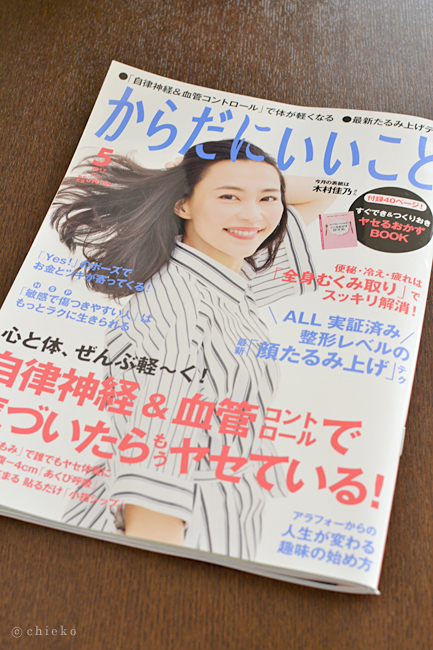 ●「自律神経&血管コントロール」で体が軽くなる ●最新たるみ上げテ
からだにいいこと
5
今月の表紙は
木村佳乃
付録40ページ!
すぐでき&つくりおき
ヤセるおかず
BOOK
「Yes!」のポーズで
お金とツキが寄ってくる
HSP
「敏感で傷つきやすい人」は
もっとラクに生きられる
便秘・冷え・疲れは
「全身むくみ取り」で
スッキリ解消!
ALL 実証済み
整形レベルの
最新「顔たるみ上げ」テク
心と体、ぜんぶ軽〜く!
自律神経&血管コントロールで
気づいたらもうヤセている!
もみ」で誰でもヤセ体質に
腹−4cm「あくび呼吸
まる 貼るだけ「小指テープ
アラフォーからの
人生が変わる
趣味の始め方
©chieko